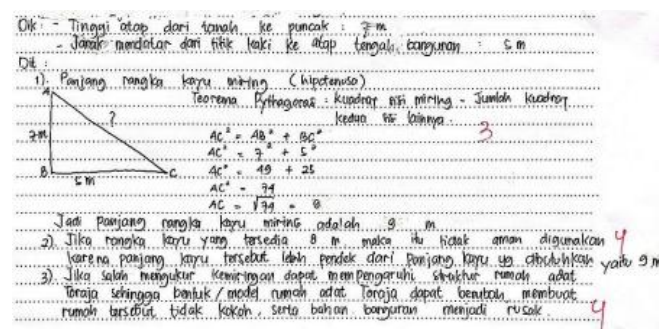 Dik : - Tinggi atap dari tanah ke puncak : 7 m
- Jarak mendatar dari titik kaki ke atap tengah bangunan : 5 m
Dit :
1). Panjang rangka kayu miring (hipotenusa)
A
Teorema Pythagoras : kuadrat sisi miring = Jumlah kuadrat
kedua sisi lainnya.
?
3
7m
AC² = AB² + BC²
AC² = 7² + 5²
AC² = 49 + 25
B
C
5 m
AC² = 74
AC = √74 =
Jadi panjang rangka kayu miring adalah 9 m
2). Jika rangka kayu yang tersedia 8 m, maka itu tidak aman digunakan 4
karena panjang kayu tersebut lebih pendek dari panjang kayu yg dibutuhkan yaitu 9 m
3). Jika salah mengukur kemiringan dapat mempengaruhi struktur rumah adat
Toraja sehingga bentuk / model rumah adat Toraja dapat berubah, membuat
rumah tersebut tidak kokoh, serta bahan bangunan menjadi rusak.
4